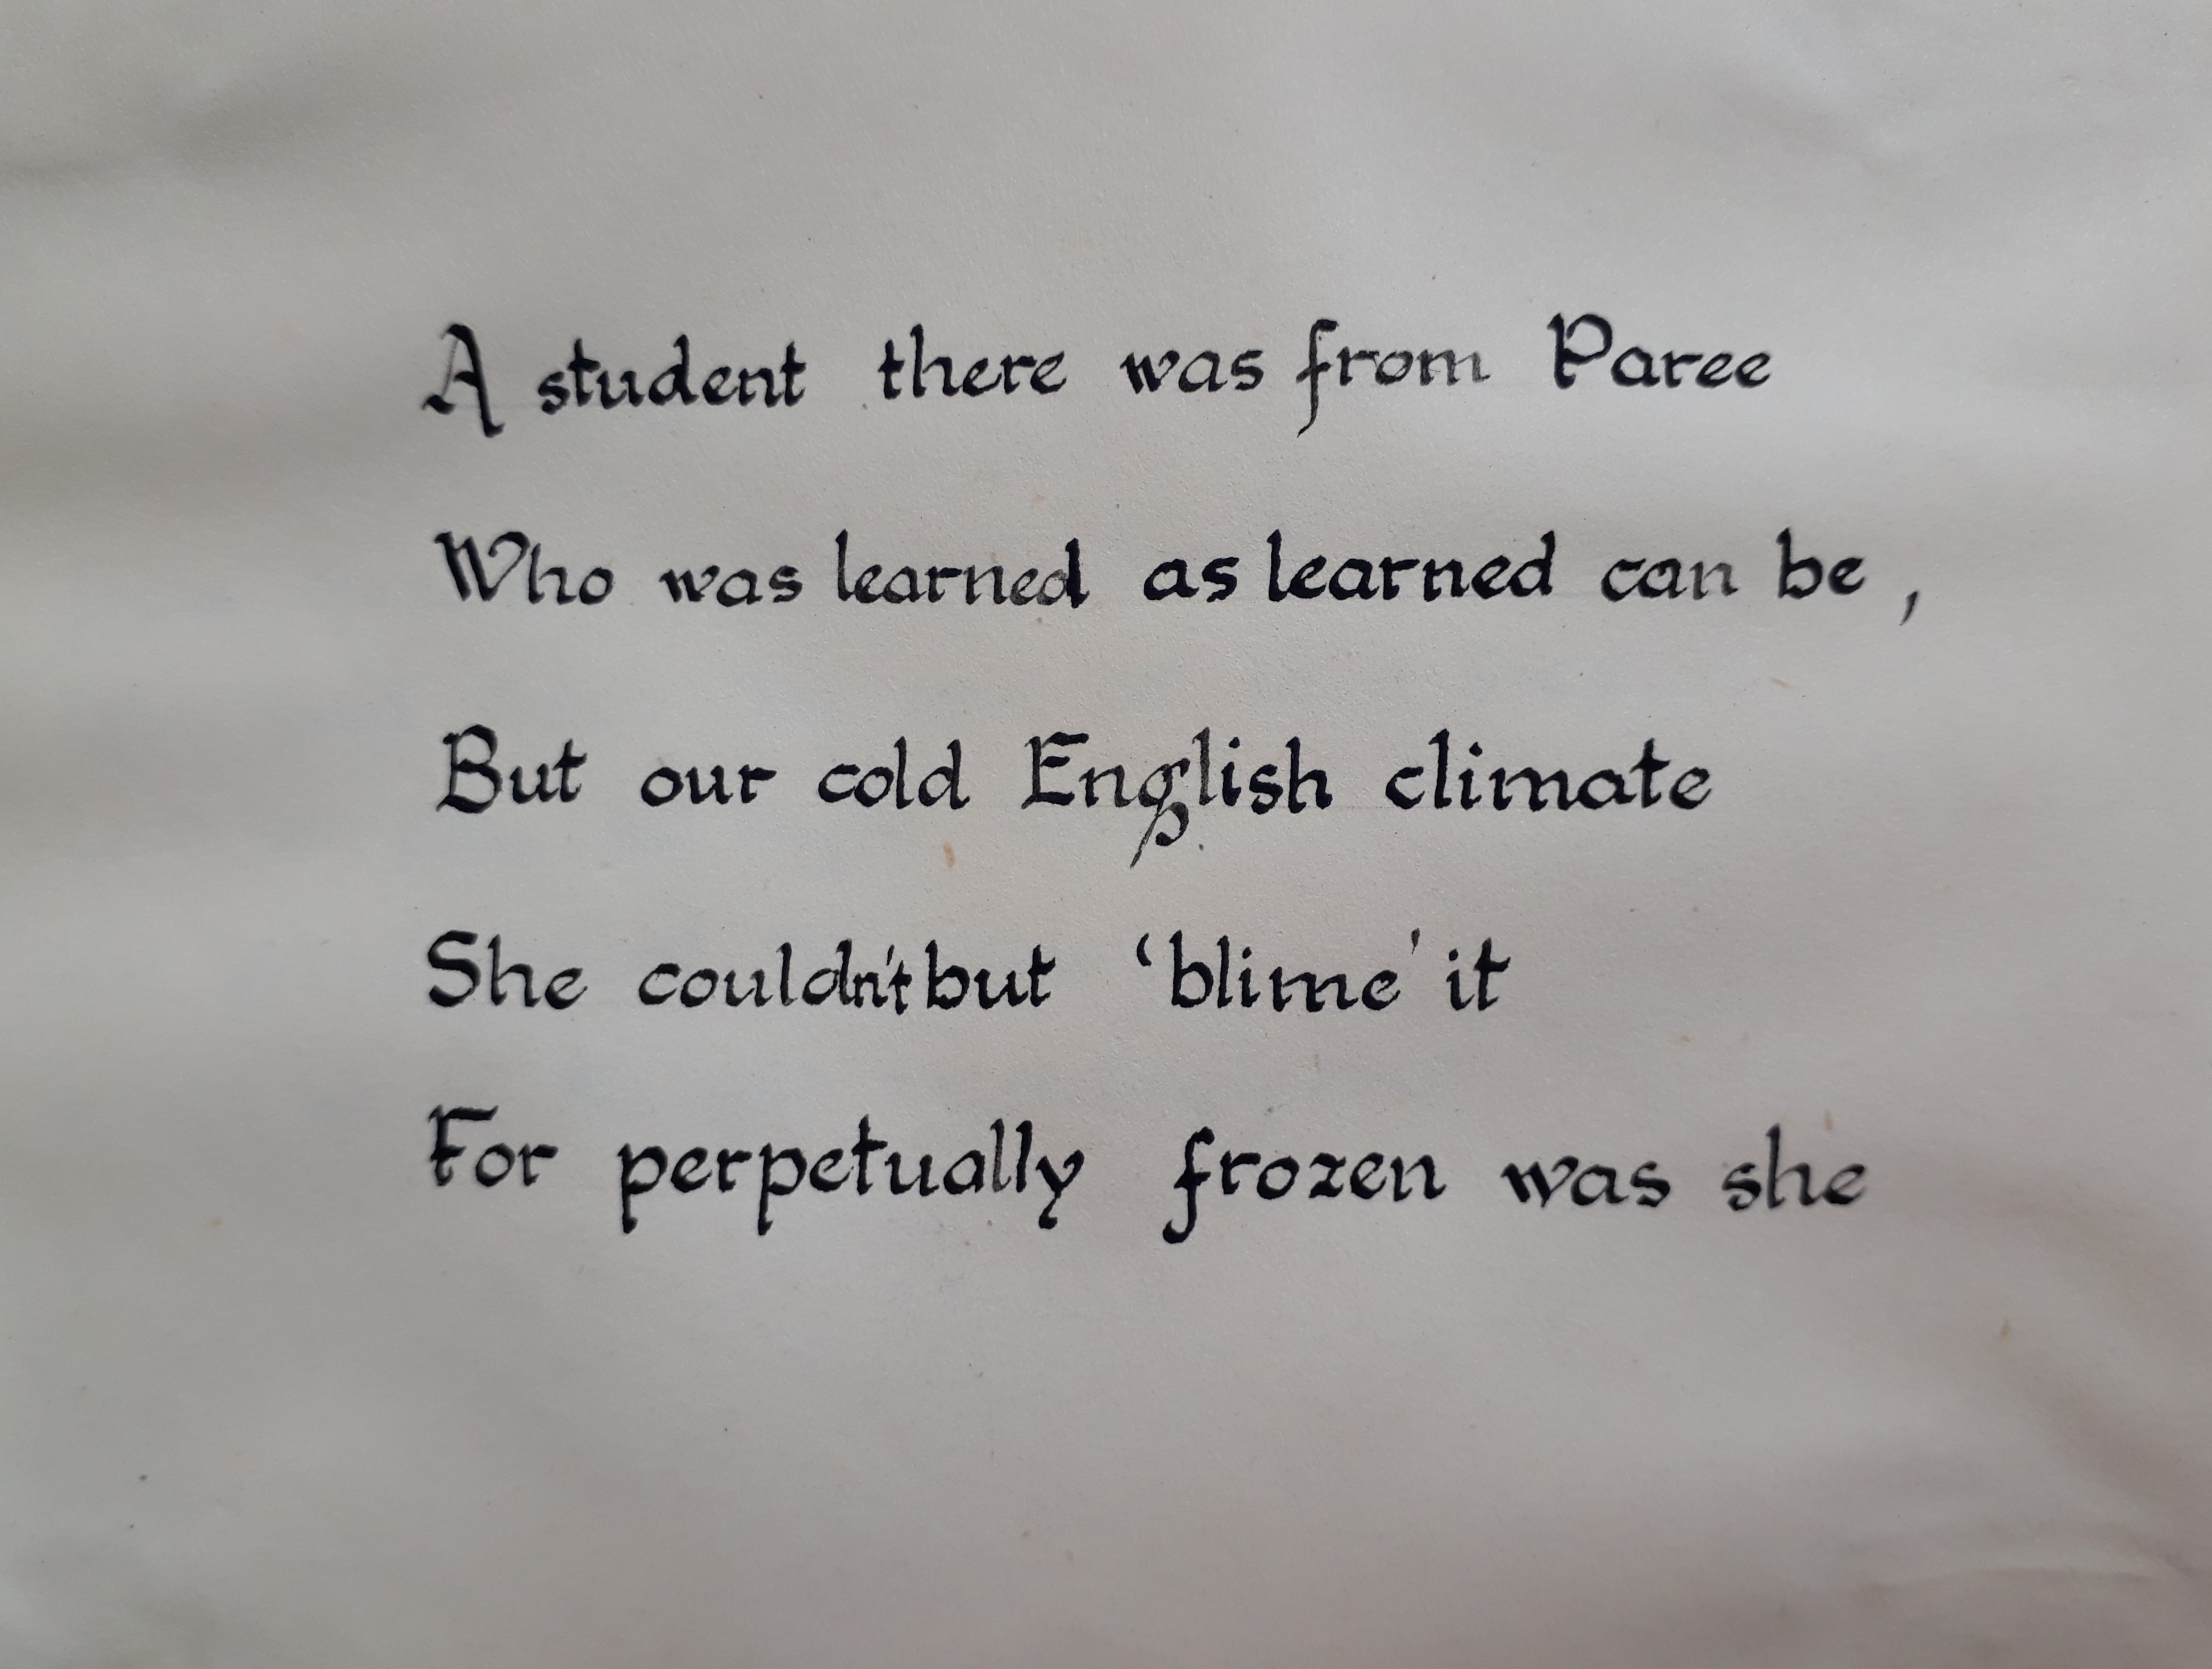 A student there was from Paree
Who was learned as learned can be,
But our cold English climate
She couldn't but 'blime' it
For perpetually frozen was she